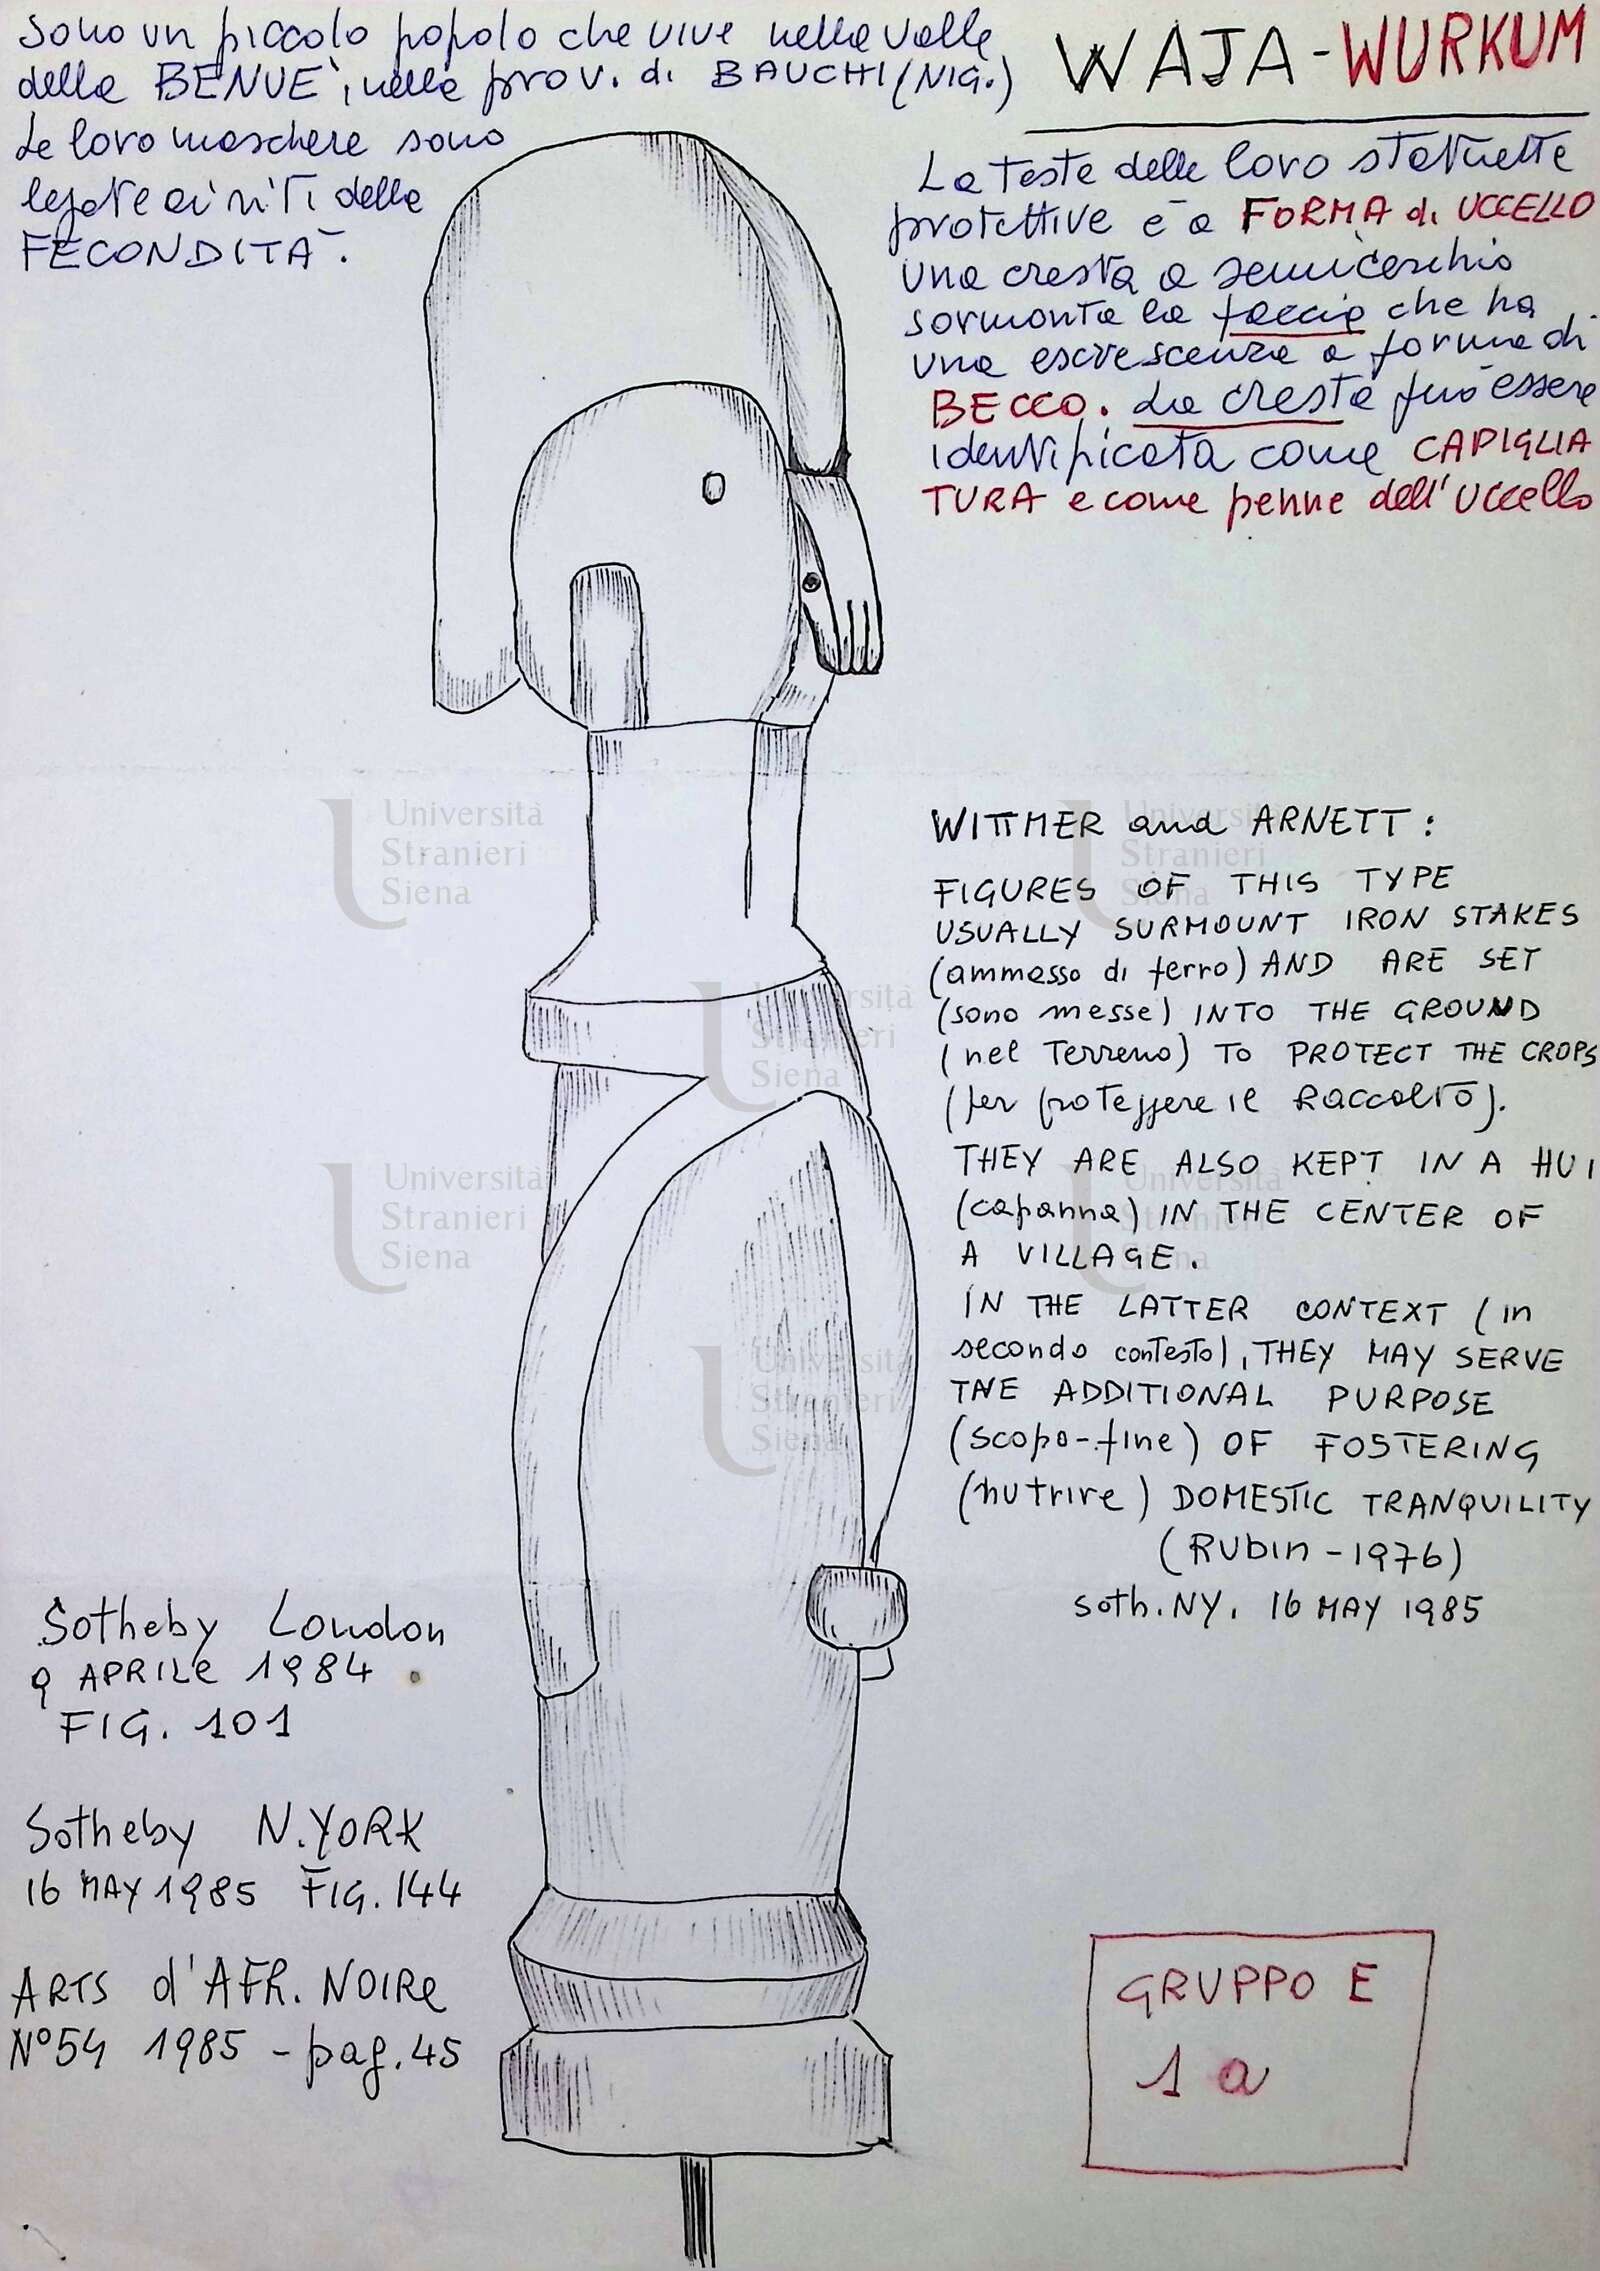 WAJA-WURKUM
Sono un piccolo popolo che vive nella valle
della BENUE', nella prov. di BAUCHI (NIG.)
Le loro maschere sono
legate ai riti della
FECONDITA'.
La testa delle loro statuette
protettive è a FORMA di UCCELLO
una cresta a semicerchio
sormonta la faccia che ha
una escrescenza a forma di
BECCO. La cresta può essere
identificata come CAPIGLIA
TURA e come penne dell'uccello
WITTMER and ARNETT:
FIGURES OF THIS TYPE
USUALLY SURMOUNT IRON STAKES
(ammasso di ferro) AND ARE SET
(sono messe) INTO THE GROUND
(nel Terreno) TO PROTECT THE CROPS
(per proteggere il Raccolto).
THEY ARE ALSO KEPT IN A HUT
(capanna) IN THE CENTER OF
A VILLAGE.
IN THE LATTER CONTEXT (in
secondo contesto), THEY MAY SERVE
THE ADDITIONAL PURPOSE
(scopo-fine) OF FOSTERING
(nutrire) DOMESTIC TRANQUILITY
(RUbin-1976)
Soth. NY. 16 MAY 1985
Sotheby London
9 APRILE 1984
FIG. 101
Sotheby N.YORK
16 MAY 1985 FIG. 144
ARTS d'AFR. NOIRe
N°54 1985 - pag. 45
GRUPPO E
1 a
Università
Stranieri
Siena
Università
Stranieri
Siena
Università
Stranieri
Siena
Università
Stranieri
Siena
Università
Stranieri
Siena
Università
Stranieri
Siena